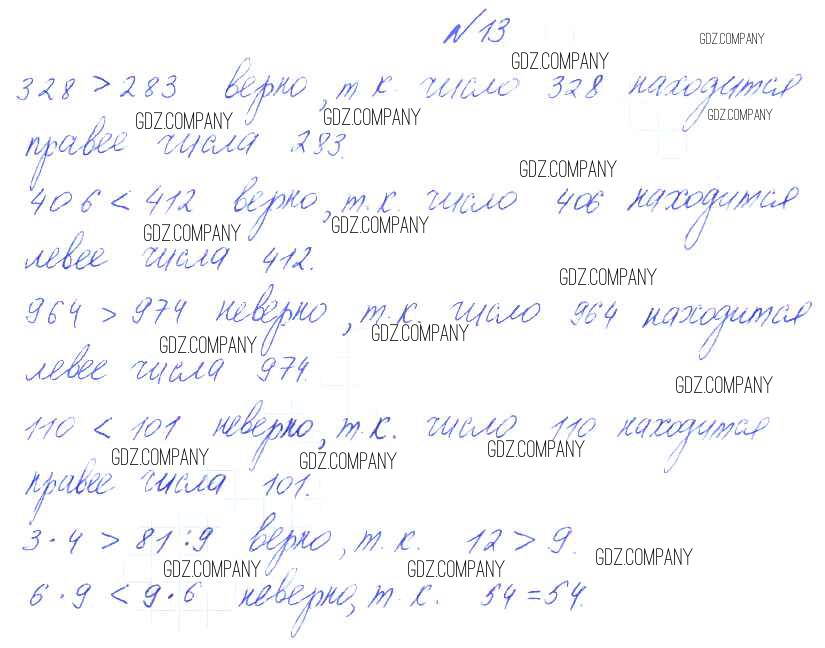 № 13
GDZ.COMPANY GDZ.COMPANY
328 > 283 верно, т.к. число 328 находится
GDZ.COMPANY GDZ.COMPANY GDZ.COMPANY
правее числа 283.
GDZ.COMPANY
406 < 412 верно, т.к. число 406 находится
GDZ.COMPANY GDZ.COMPANY
левее числа 412.
GDZ.COMPANY
964 > 974 неверно, т.к. число 964 находится
GDZ.COMPANY GDZ.COMPANY
левее числа 974.
GDZ.COMPANY
110 < 101 неверно, т.к. число 110 находится
GDZ.COMPANY GDZ.COMPANY GDZ.COMPANY
правее числа 101.
3 · 4 > 81 : 9 верно, т.к. 12 > 9.
GDZ.COMPANY GDZ.COMPANY GDZ.COMPANY
6 · 9 < 9 · 6 неверно, т.к. 54 = 54.